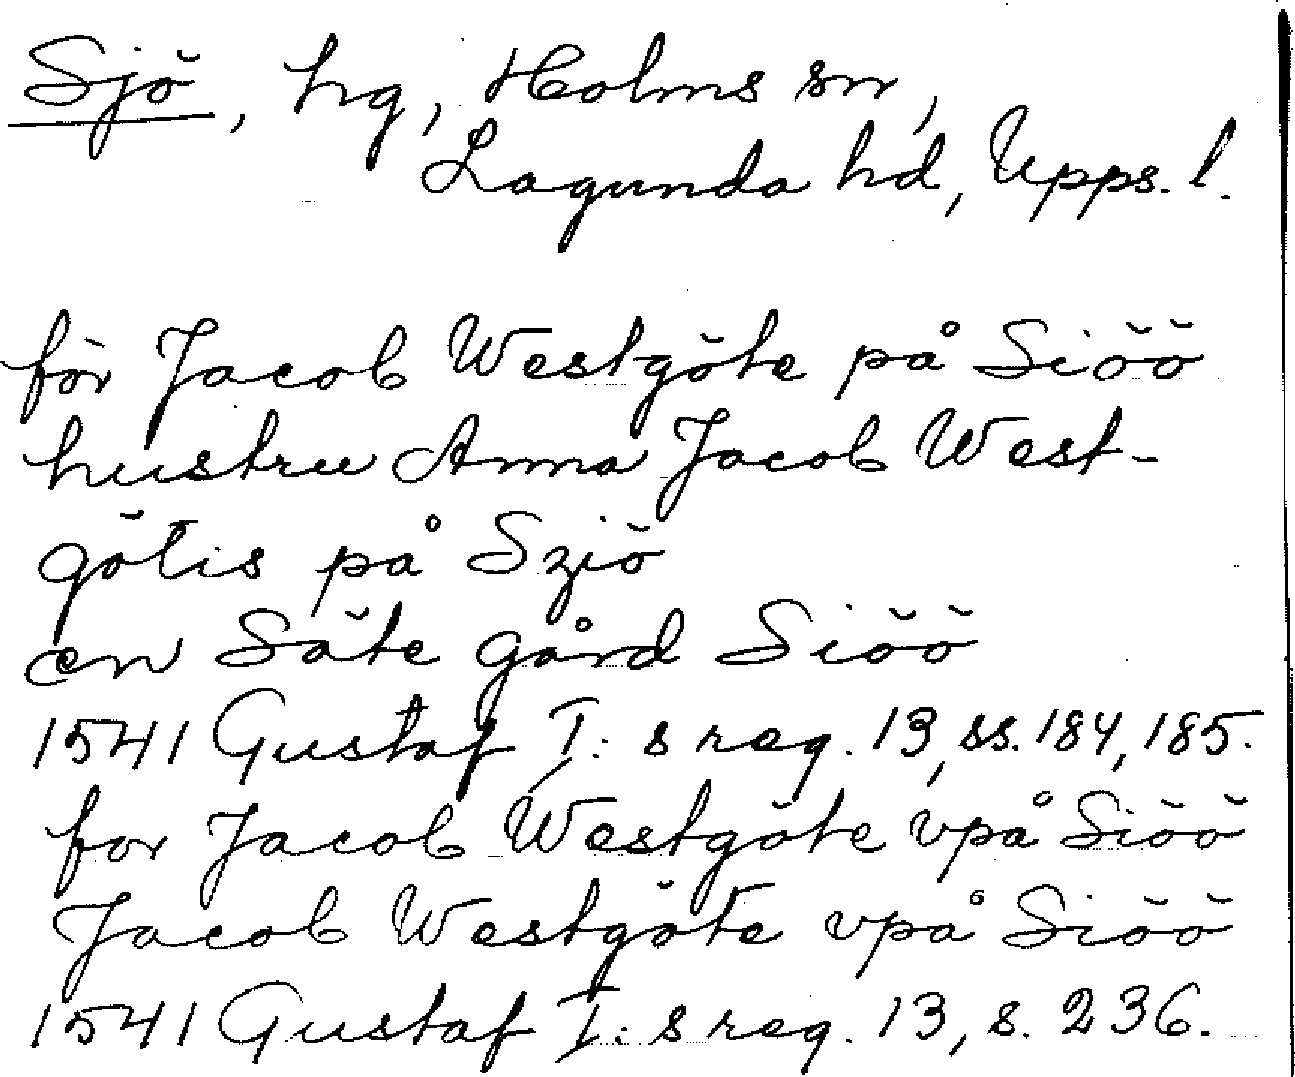 Sjö, hg, Holms sn,
Lagunda hd, Upps. l.
för Jacob Westgöte på Siöö
hustru Anna Jacob West-
götis på Sziö
en Säte gård Siöö
1541 Gustaf I: s reg. 13, ss. 184, 185.
for Jacob Westgöte vpå Siöö
Jacob Westgöte vpå Siöö
1541 Gustaf I: s reg. 13, s. 236.